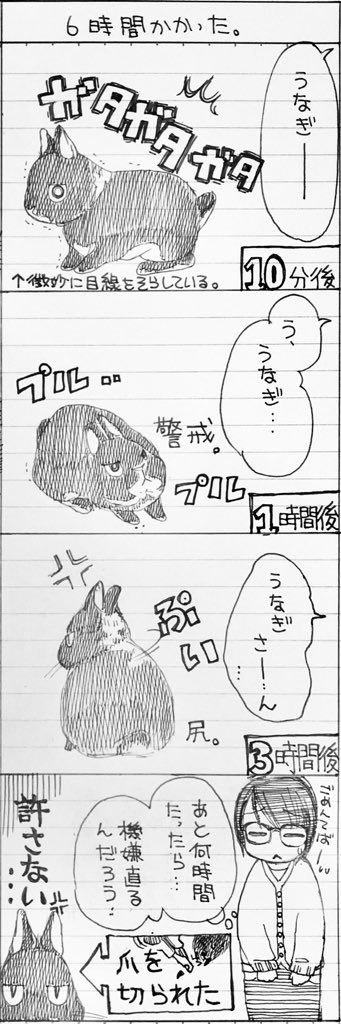 6時間かかった。
うなぎ——
ガタガタガタ
10分後
↑微妙に目線をそらしている。
う、
うなぎ…
プル‥
警戒。
プルプル
1時間後
うなぎ
さー…ん
…
ぷい
尻。
3時間後
ごめんてばーい
あと何時間
たったら…
機嫌直る
んだろう…
許さない…
爪を
切られた